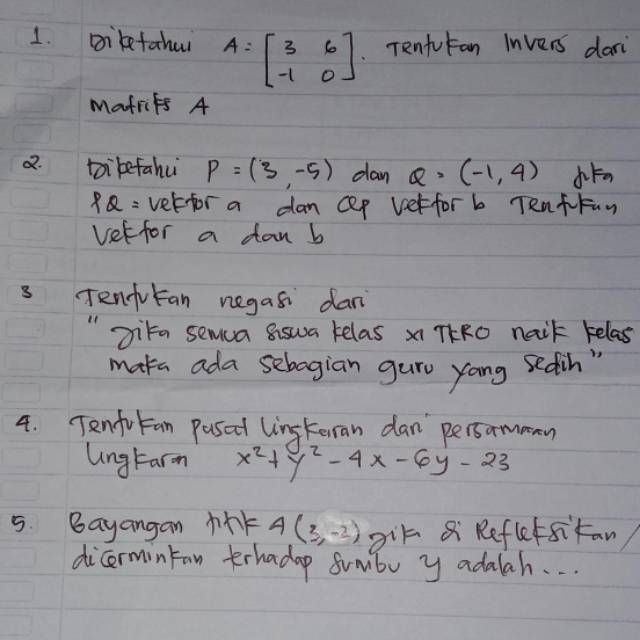 1. Diketahui A = [3 6
-1 0]. Tentukan Invers dari
Matriks A
2. Diketahui P = (3, -5) dan Q = (-1, 4) Jika
PQ = vektor a dan QP vektor b Tentukan
Vektor a dan b
3 Tentukan negasi dari
"Jika semua siswa kelas XI TKRO naik kelas
maka ada sebagian guru yang sedih"
4. Tentukan pusat lingkaran dari persamaan
lingkaran x²+y²-4x-6y-23
5. Bayangan titik A (3,-2) jika di Refleksikan/
dicerminkan terhadap Sumbu y adalah...